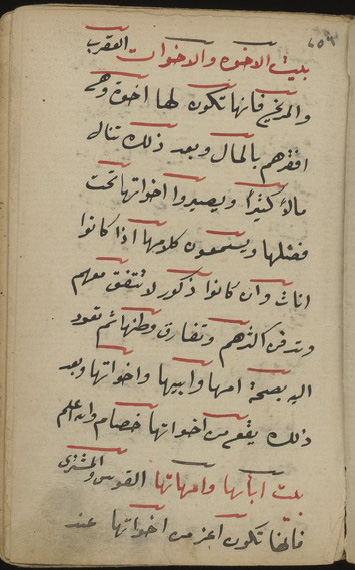 بيت الاخوه والاخوات العقرب
والمريخ فانها تكون لها اخوة وهي
افقرهم بالمال وبعد ذلك تنال
مالاً كثيراً ويصيروا اخواتها تحت
فضلها ويسمعون كلامها اذا كانوا
اناث وان كانوا ذكور لا تتفق معهم
وتدفن اكثرهم وتفارق وطنها ثم تعود
اليه بصحة امها وابيها واخواتها وبعد
ذلك يقع من اخواتها خصام والله اعلم
بيت ابائها وامهاتها القوس والمشترى
فانها تكون اعز من اخواتها عند